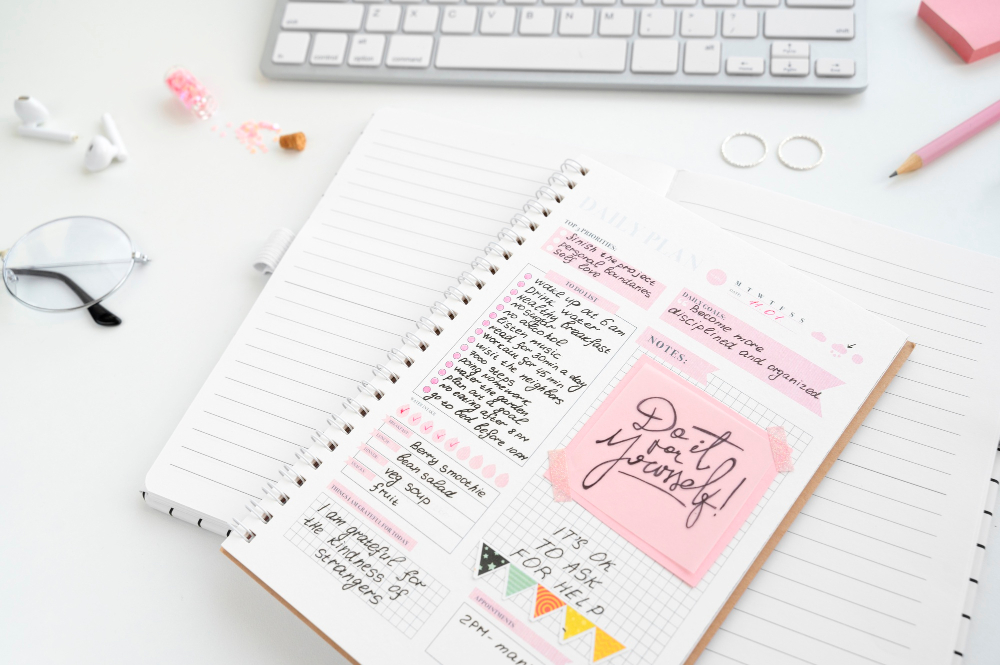 Z X C V B N M
alt
control option command
alt
DAILY PLAN
M T W T F S S
11.01
TOP 3 PRIORITIES:
finish the project
personal boundaries
self love
DAILY GOALS:
Become more
disciplined and organized
TO DO LIST
wake up at 6 am
Drink water
healthy breakfast
no sugar
no alcohol
listen music
read for 30min a day
workout for 45 min
wisit the neighbors
7000 steps
doing homework
water the garden
plan out a goal
no eating after 8 PM
go to bed before 10PM
NOTES:
Do it
for
Yourself!
BREAKFAST
Berry smoothie
bean salad
DINNER
veg soup
fruit
THINGS I AM GRATEFUL FOR TODAY
I am grateful for
the kindness of
strangers
IT'S OK
TO ASK
FOR HELP
APPOINTMENTS
2PM-